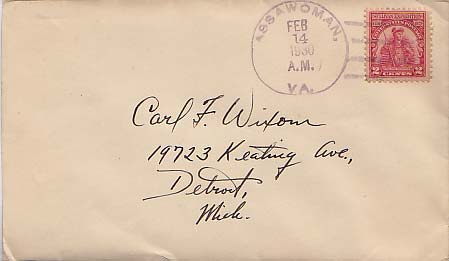 ASSAWOMAN,
FEB
14
1930
A.M.
VA.
SULLIVAN EXPEDITION
2 CENTS 2
Carl F. Wixom
19723 Keating Ave.,
Detroit,
Mich.